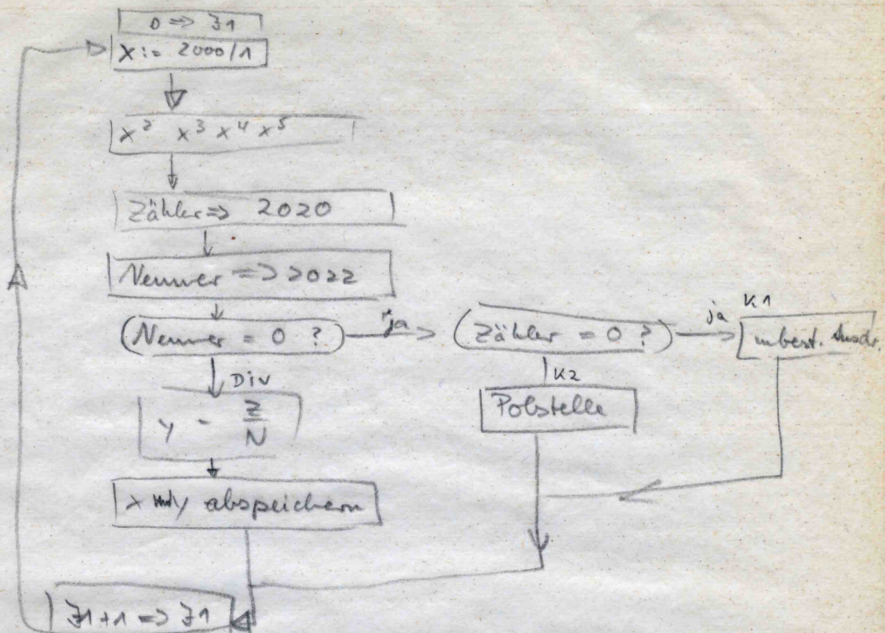 0 => Z1
X := 2000/1
x² x³ x⁴ x⁵
Zähler => 2020
Nenner => 2022
Nenner = 0 ?
ja
Zähler = 0 ?
ja
K1
unbest. Ausdr.
Div
y = Z/N
K2
Polstelle
x und y abspeichern
Z1+1 => Z1